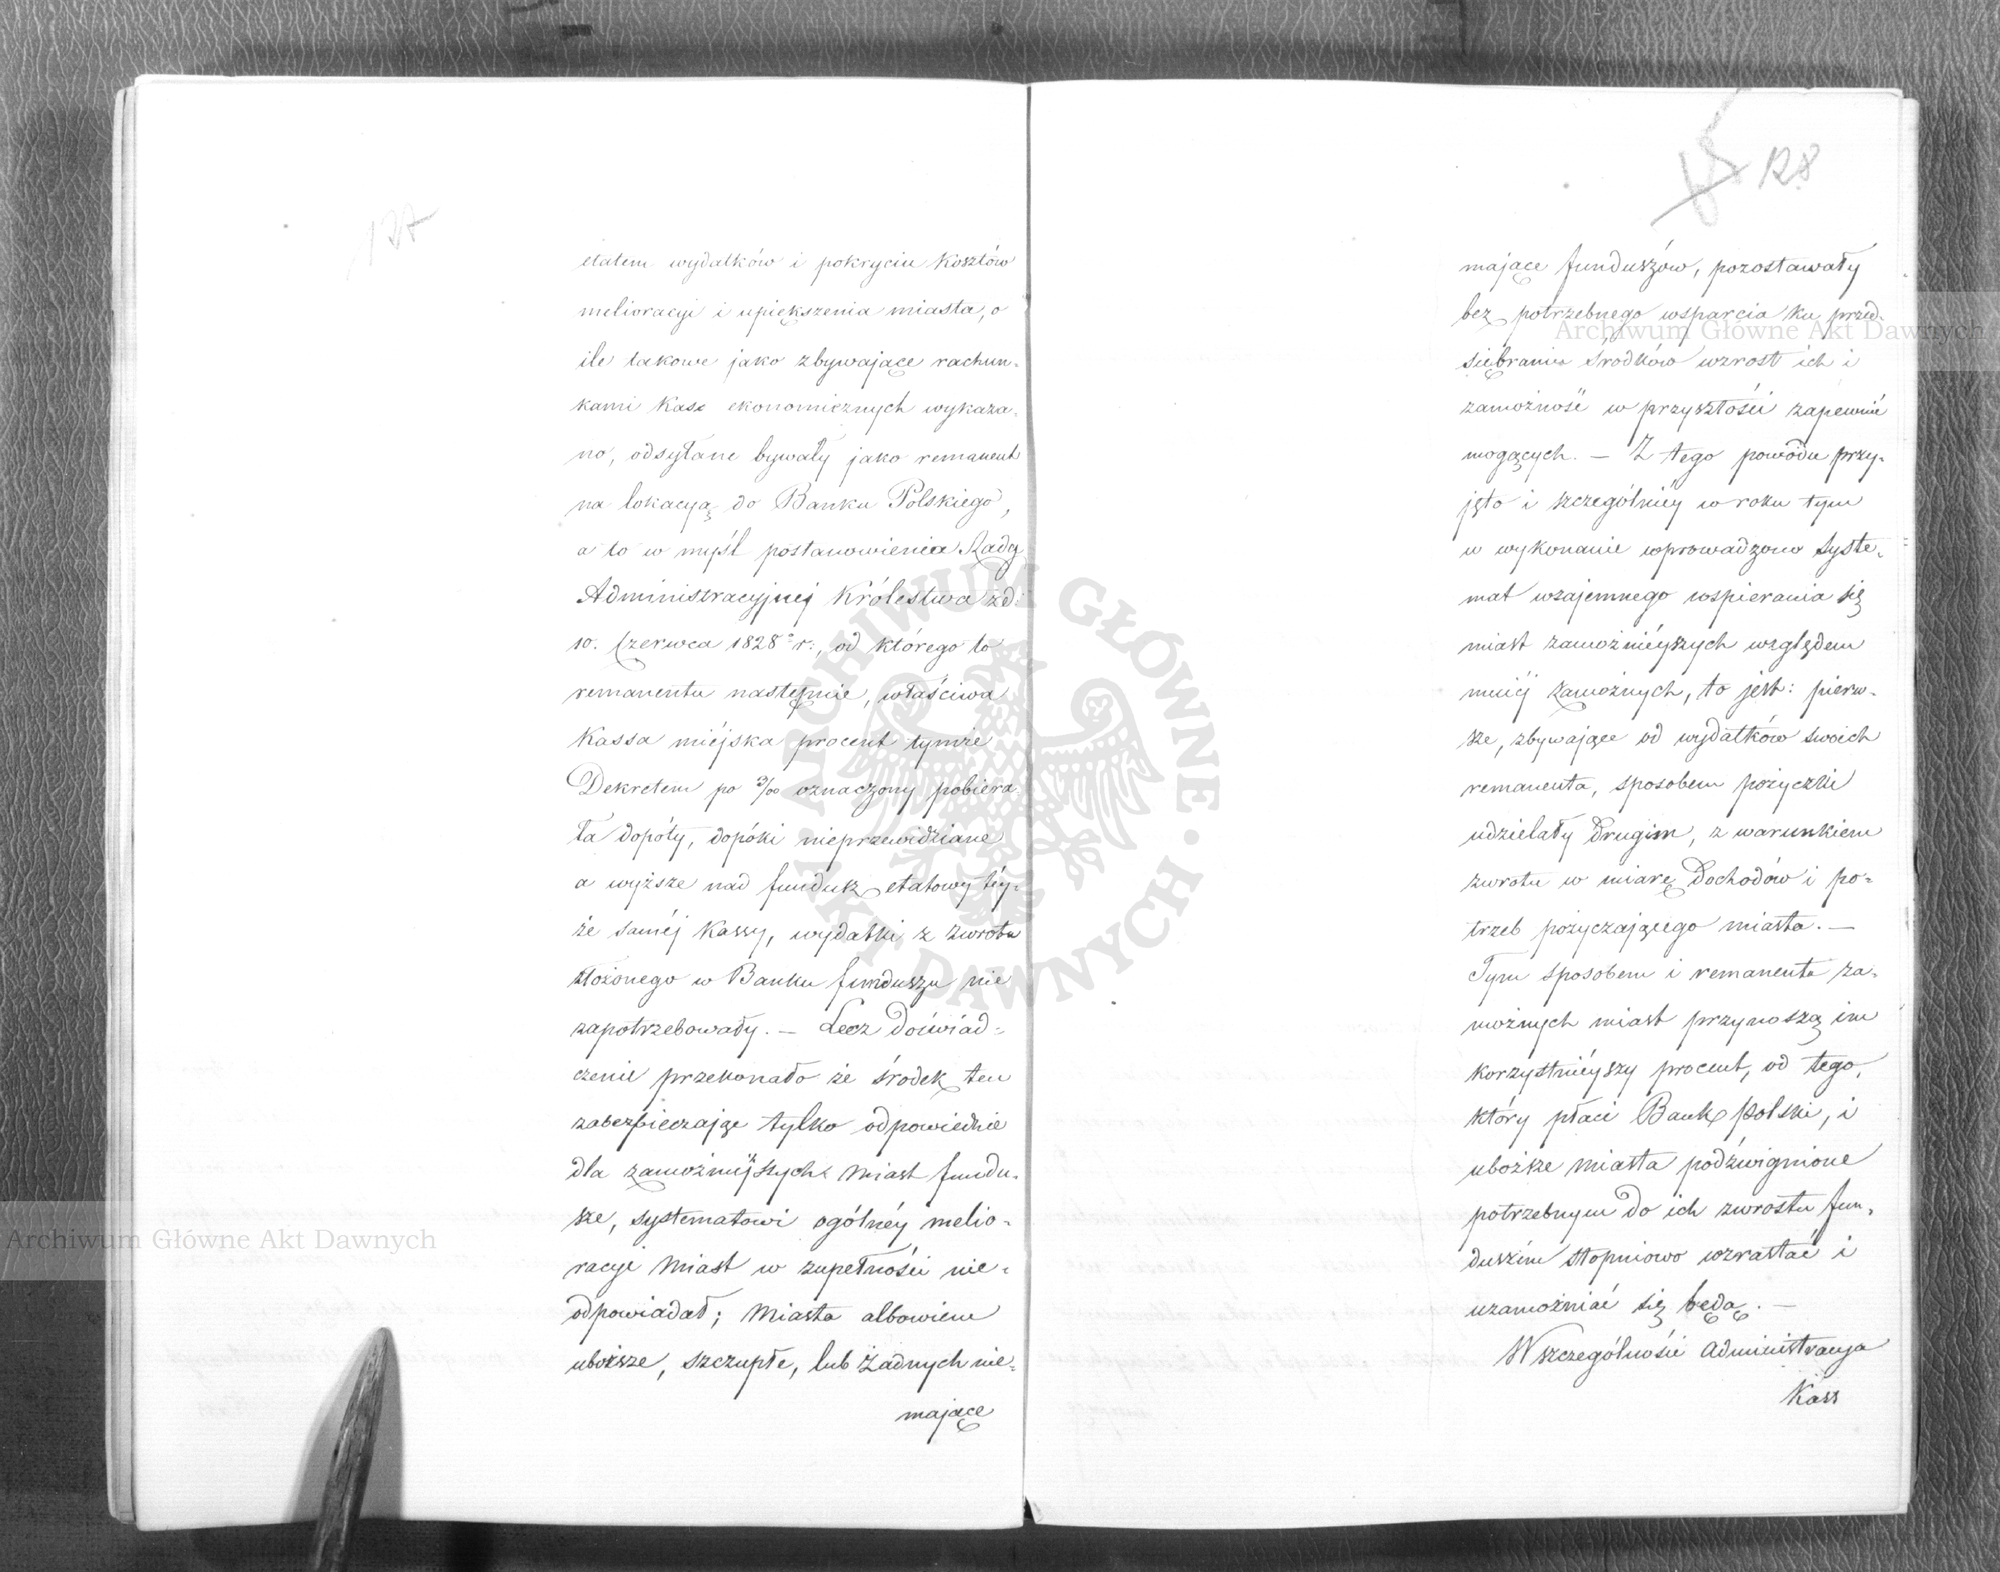 127
etatem wydatków i pokryciu Kosztów
melioracyi i upiększenia miasta, o
ile takowe jako zbywające rachun-
kami Kass ekonomicznych wykaza-
no, odsyłane bywały jako remanent
na lokacyą do Banku Polskiego,
a to w myśl postanowienia Rady
Administracyjnej Królestwa z d:
10. Czerwca 1828° r:, od którego to
remanentu następnie, właściwa
Kassa miejska procent tymże
Dekretem po 3/00 oznaczony pobiera-
ła dopóty, dopóki nieprzewidziane
a wyższe nad fundusz etatowy téy-
że saméj Kassy, wydatki z zwrotu
złożonego w Banku funduszu nie
zapotrzebowały. — Lecz Doświad-
czenie przekonało że środek ten
zabezpieczając tylko odpowiednie
dla zamożniejszych miast fundu-
sze, systematowi ogólnéy melio-
racyi Miast w zupełności nie-
odpowiadał; Miasta albowiem
uboższe, szczupłe, lub żadnych nie-
mające
128
mające funduszów, pozostawały
bez potrzebnego wsparcia ku przed-
siębraniu środków wzrost ich i
zamożność w przyszłości zapewnić
mogących. — Z tego powodu przy-
jęto i szczególniéy w roku tym
w wykonanie wprowadzono syste-
mat wzajemnego wspierania się
miast zamożniéyszych względem
mniéj zamożnych, to jest: pierw-
sze, zbywające od wydatków swoich
remanenta, sposobem pożyczki
udzielały Drugim, z warunkiem
zwrotu w miarę Dochodów i po-
trzeb pożyczającego miasta. —
Tym sposobem i remanenta za-
możnych miast przynoszą im
korzystniéyszy procent, od tego,
który płaci Bank Polski, i
uboższe miasta podźwignione
potrzebnym do ich zwrostu fun-
duszem stopniowo wzrastać i
uzamożniać się będą. —
W szczególności Administracya
Kass
Archiwum Główne Akt Dawnych
Archiwum Główne Akt Dawnych
ARCHIWUM GŁÓWNE · AKT DAWNYCH ·